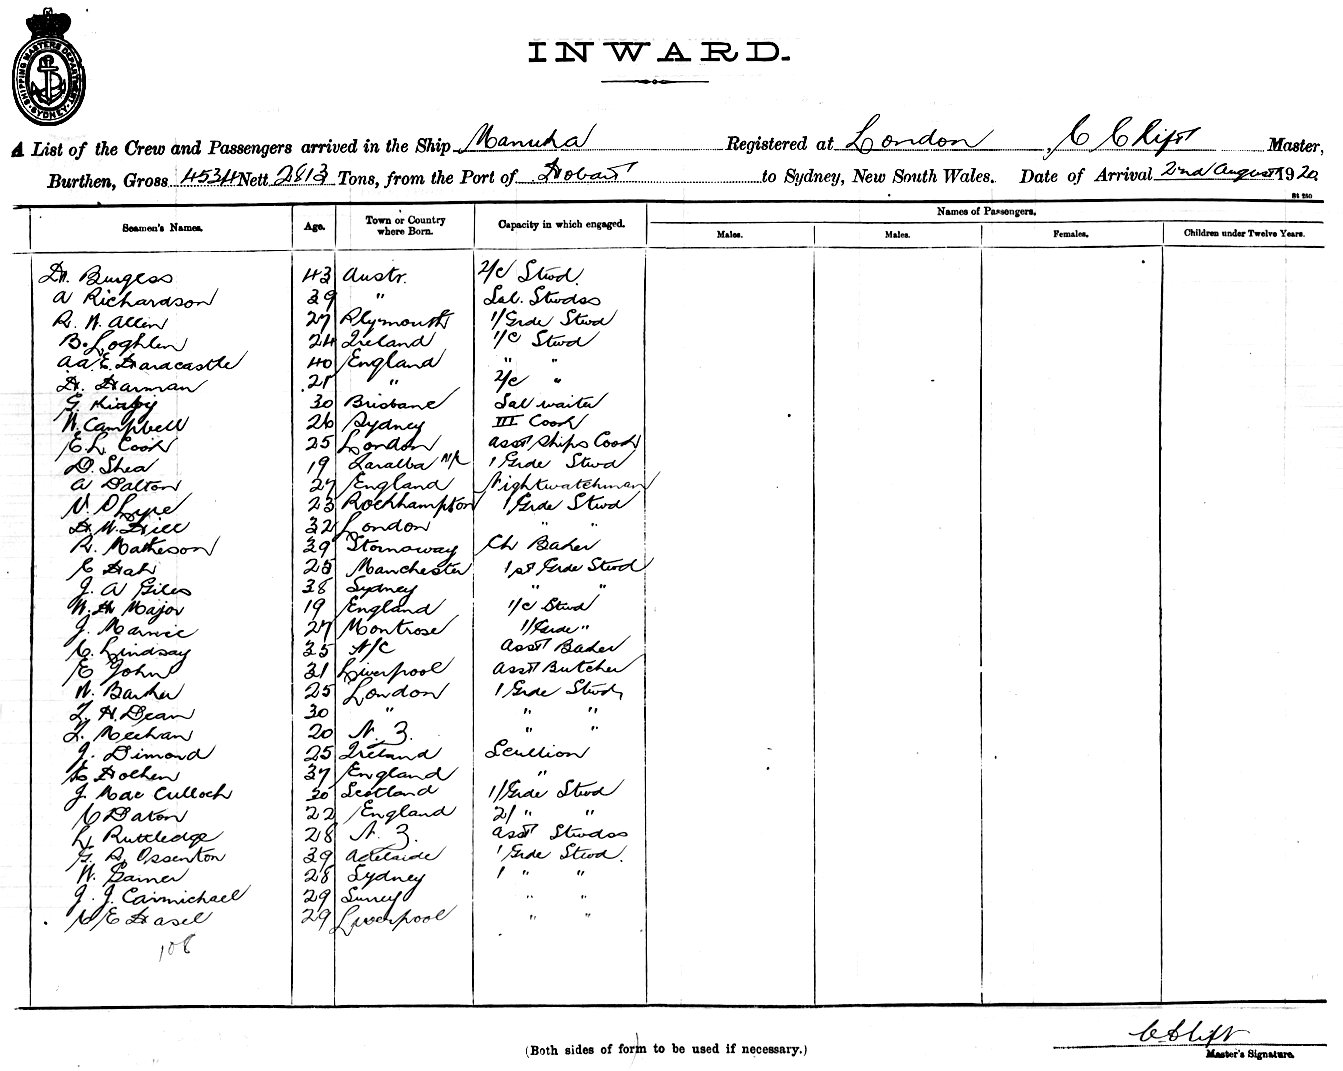 SHIPPING MASTERS DEPARTMENT SYDNEY
INWARD.
A List of the Crew and Passengers arrived in the Ship Manuka Registered at London, C Clift Master,
Burthen, Gross 4534 Nett 2813 Tons, from the Port of Hobart to Sydney, New South Wales. Date of Arrival 2nd August 1920
Names of Passengers.
Seamen's Names. Age. Town or Country where Born. Capacity in which engaged. Males. Males. Females. Children under Twelve Years.
H. Burgess 43 Austr. 2/C Stwd.
A Richardson 39 " Sal. Stwdss
R. W. Allen 27 Plymouth 1/Grde Stwd
B. Loghlen 24 Ireland 1/C Stwd
E. Hardcastle 40 England " "
H. Harman 21 " 2/C "
G. Kirby 30 Brisbane Sal waiter
W. Campbell 26 Sydney III Cook
E. L. Cook 25 London asst Ships Cook
D. Shea 19 Taralba 1 Grde Stwd
A Dalton 27 England Nightwatchman
23 Rockhampton 1 Grde Stwd
H. W. Hill 32 London " "
R. Matheson 39 Stornaway Ch Baker
25 Manchester 1st Grde Stwd
J. A Giles 38 Sydney " "
W. H Major 19 England 1/C Stwd
J. 27 Montrose 1/Grde "
C. Lindsay 35 N/C asst Baker
E John 31 Liverpool asst Butcher
W. Barker 25 London 1 Grde Stwd,
H. Dean 30 " " "
Meehan 20 N. Z. " "
J. Dimond 25 Ireland Scullion
37 England "
J. Mac Culloch 30 Scotland 1/Grde Stwd
C Daton 22 England 2/ " "
L. Ruttledge 28 N. Z. asst Stwdss
G. Ossenton 39 Adelaide 1 Grde Stwd.
W. Garner 28 Sydney 1 " "
J. J. Carmichael 29 Surrey " "
C E Hasel 29 Liverpool " "
108
(Both sides of form to be used if necessary.)
C Clift
Master's Signature.